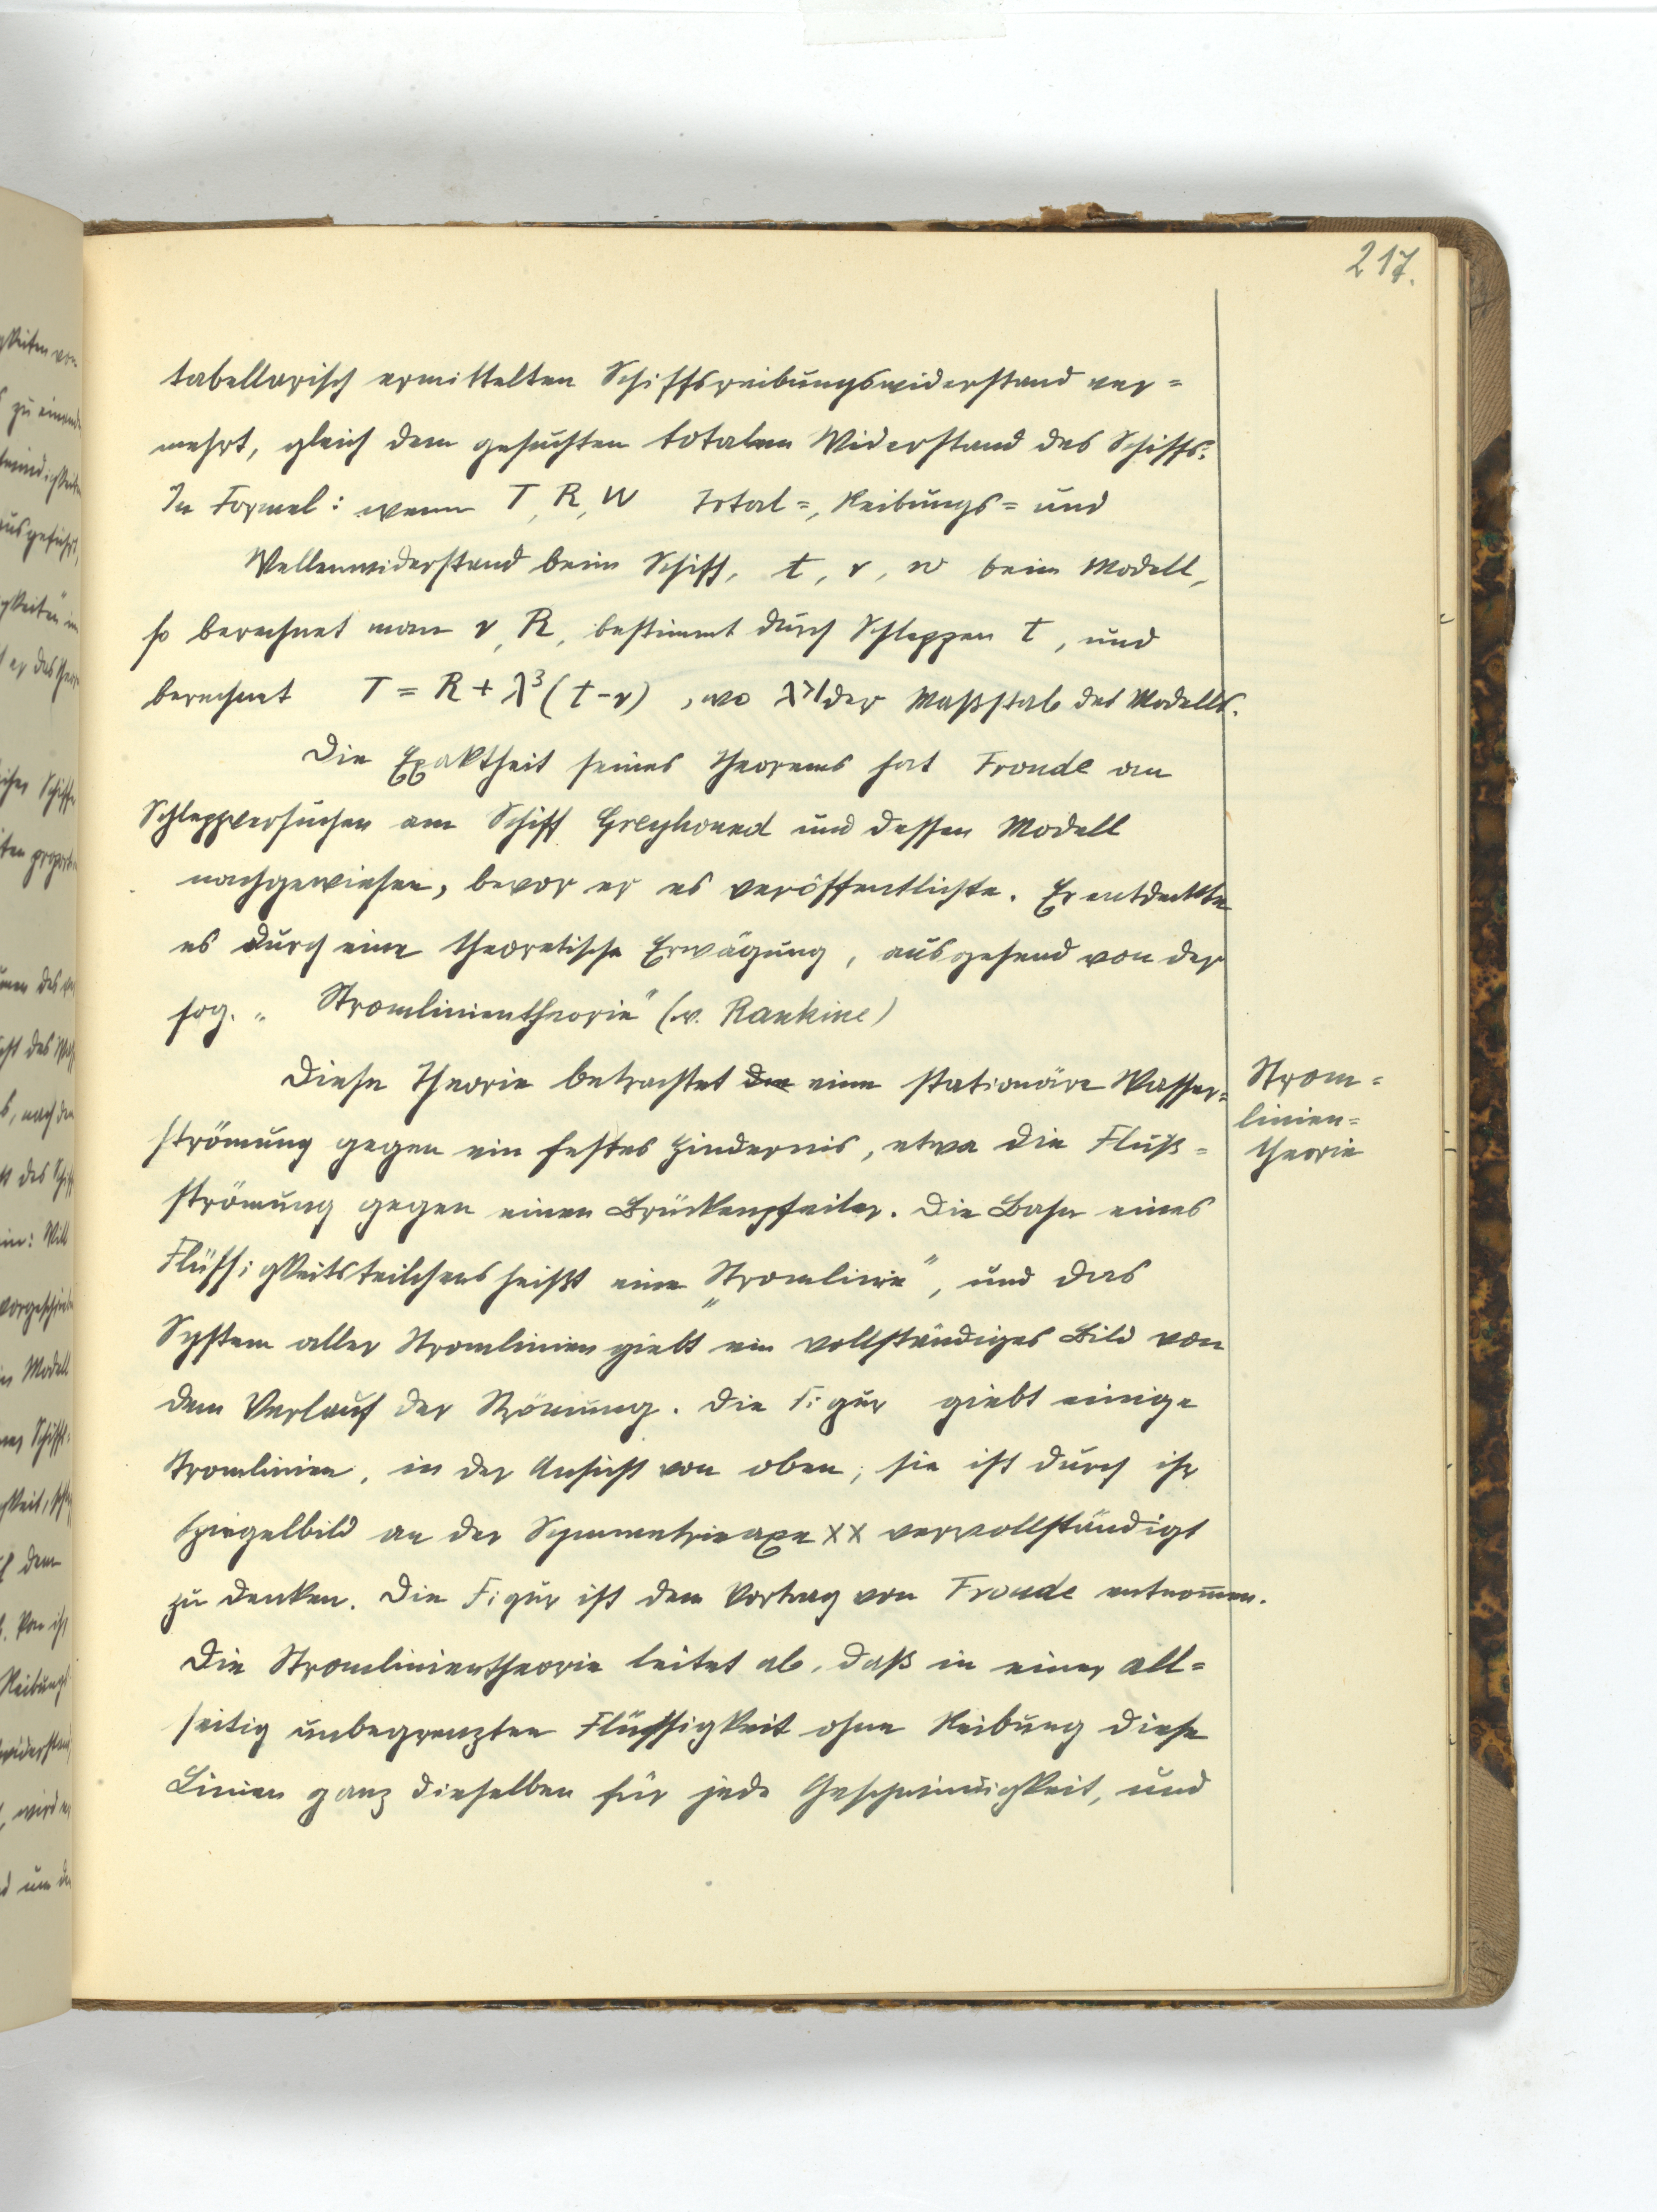 217.
tabellarisch ermittelten Schiffsreibungswiderstand ver=
mehrt, gleich dem gesuchten totalen Widerstand des Schiffs.
In Formel: wenn T, R, W Total=, Reibungs= und
Wellenwiderstand beim Schiff, t, r, w beim Modell,
so berechnet man r, R, bestimmt durch Schleppen t, und
berechnet T = R + λ³ (t-r), wo λ>1 der Maßstab des Modells.
Die Exaktheit seines Theorems hat Froude an
Schleppversuchen am Schiff Greyhound und dessen Modell
nachgewiesen, bevor er es veröffentlichte. Er entdeckte
es durch eine theoretische Erwägung, ausgehend von der
sog. „Stromlinientheorie" (v. Rankine)
Diese Theorie betrachtet eine stationäre Wasser=
strömung gegen ein festes Hindernis, etwa die Fluß=
strömung gegen einen Brückenpfeiler. Die Bahn eines
Flüssigkeitsteilchens heißt eine „Stromlinie", und das
System aller Stromlinien giebt ein vollständiges Bild von
dem Verlauf der Strömung. Die Figur giebt einige
Stromlinien, in der Ansicht von oben; sie ist durch ihr
Spiegelbild an der Symmetrieaxe XX vervollständigt
zu denken. Die Figur ist dem Vortrag von Froude entnom̄en.
Die Stromlinientheorie leitet ab, daß in einer all=
seitig unbegrenzten Flüssigkeit ohne Reibung diese
Linien ganz dieselben für jede Geschwindigkeit, und
Strom=
linien=
theorie